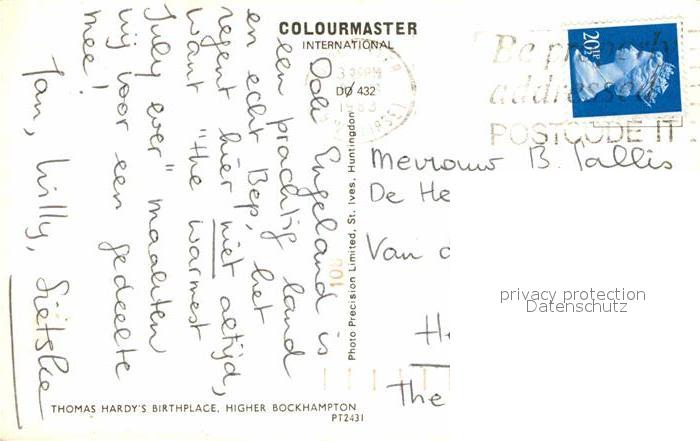 COLOURMASTER
INTERNATIONAL
DØ 432
20½P
Be properly
addressed
POSTCODE IT
1983
Ook Engeland is
een prachtig land
en echt Bep, het
regent hier niet altijd,
want "the warmest
July ever" maakten
wij voor een gedeelte
mee!
Jan, Willy, Sietske
Photo Precision Limited, St. Ives, Huntingdon
Mevrouw B. Tallis
De He
Van
The
privacy protection
Datenschutz
THOMAS HARDY'S BIRTHPLACE, HIGHER BOCKHAMPTON
PT2431